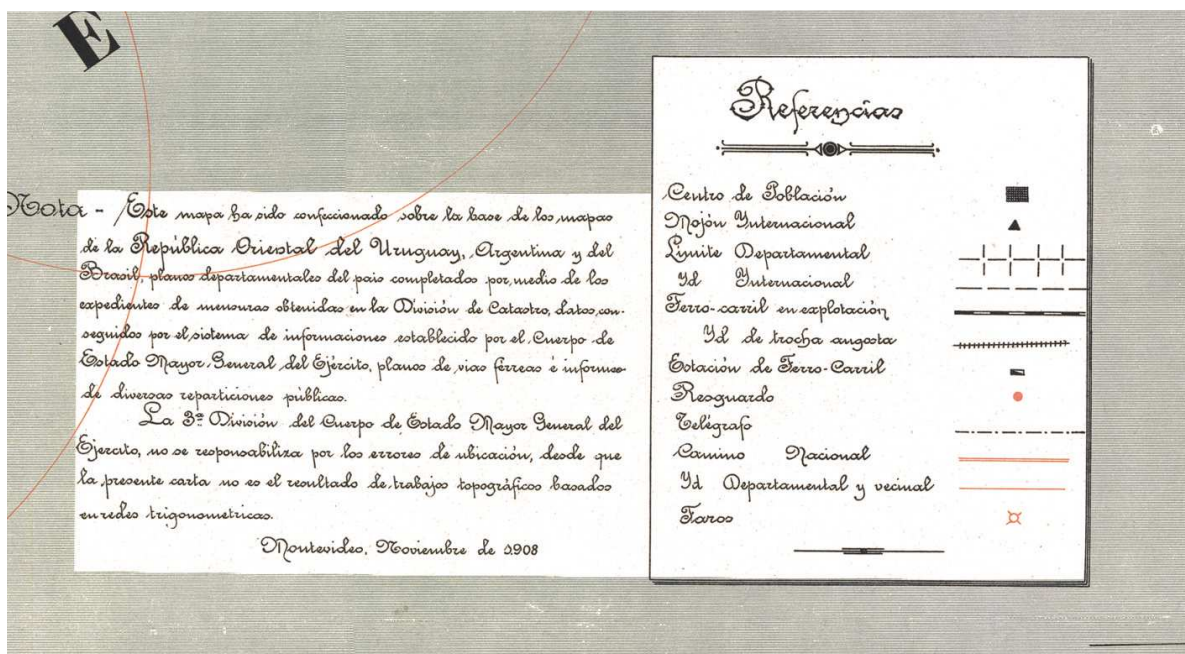 E
Nota - Este mapa ha sido confeccionado sobre la base de los mapas
de la República Oriental del Uruguay, Argentina y del
Brasil, planos departamentales del pais completados por medio de los
expedientes de mensuras obtenidas en la División de Catastro, datos con-
seguidos por el sistema de informaciones establecido por el Cuerpo de
Estado Mayor General del Ejército, planos de vias férreas é informes
de diversas reparticiones públicas.
La 3ª División del Cuerpo de Estado Mayor General del
Ejercito, no se responsabiliza por los errores de ubicación, desde que
la presente carta no es el resultado de trabajos topográficos basados
en redes trigonometricas.
Montevideo, Noviembre de 1908
Referencias
Centro de Población
Mojón Internacional
Limite Departamental
Id Internacional
Ferro-carril en explotación
Id de trocha angosta
Estación de Ferro-Carril
Resguardo
Telégrafo
Camino Nacional
Id Departamental y vecinal
Faros